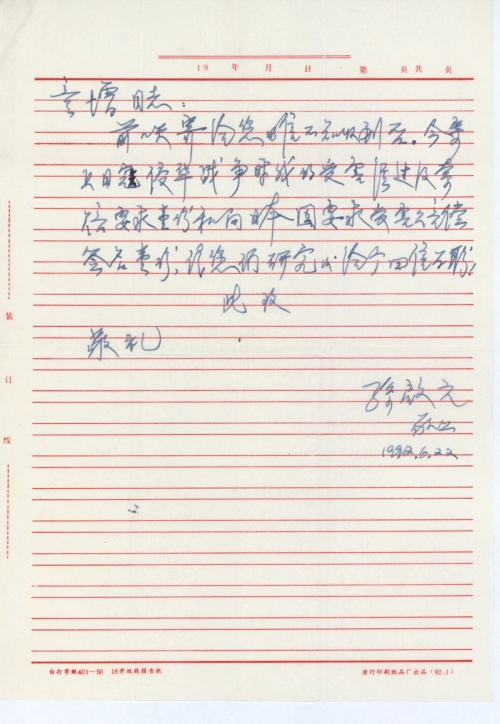 19 年 月 日 第 页共 页
童增同志：
前几天寄给您的信不知收到否。今寄
上日寇侵华战争时我的受害
要求 和向日本国要求受害赔偿
签名 ，请您们研究 给个回信 ！
此致
敬礼
启元
1992.6.22
装
订
线
白打字纸401—50 16开双线报告纸
潜行印刷纸品厂出品（92.1）